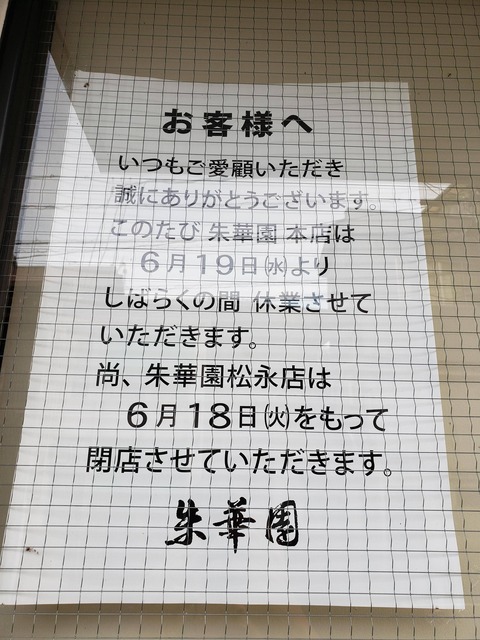 お客様へ
いつもご愛顧いただき
誠にありがとうございます。
このたび 朱華園 本店は
6月19日㈬より
しばらくの間 休業させて
いただきます。
尚、朱華園松永店は
6月18日㈫をもって
閉店させていただきます。
朱華園